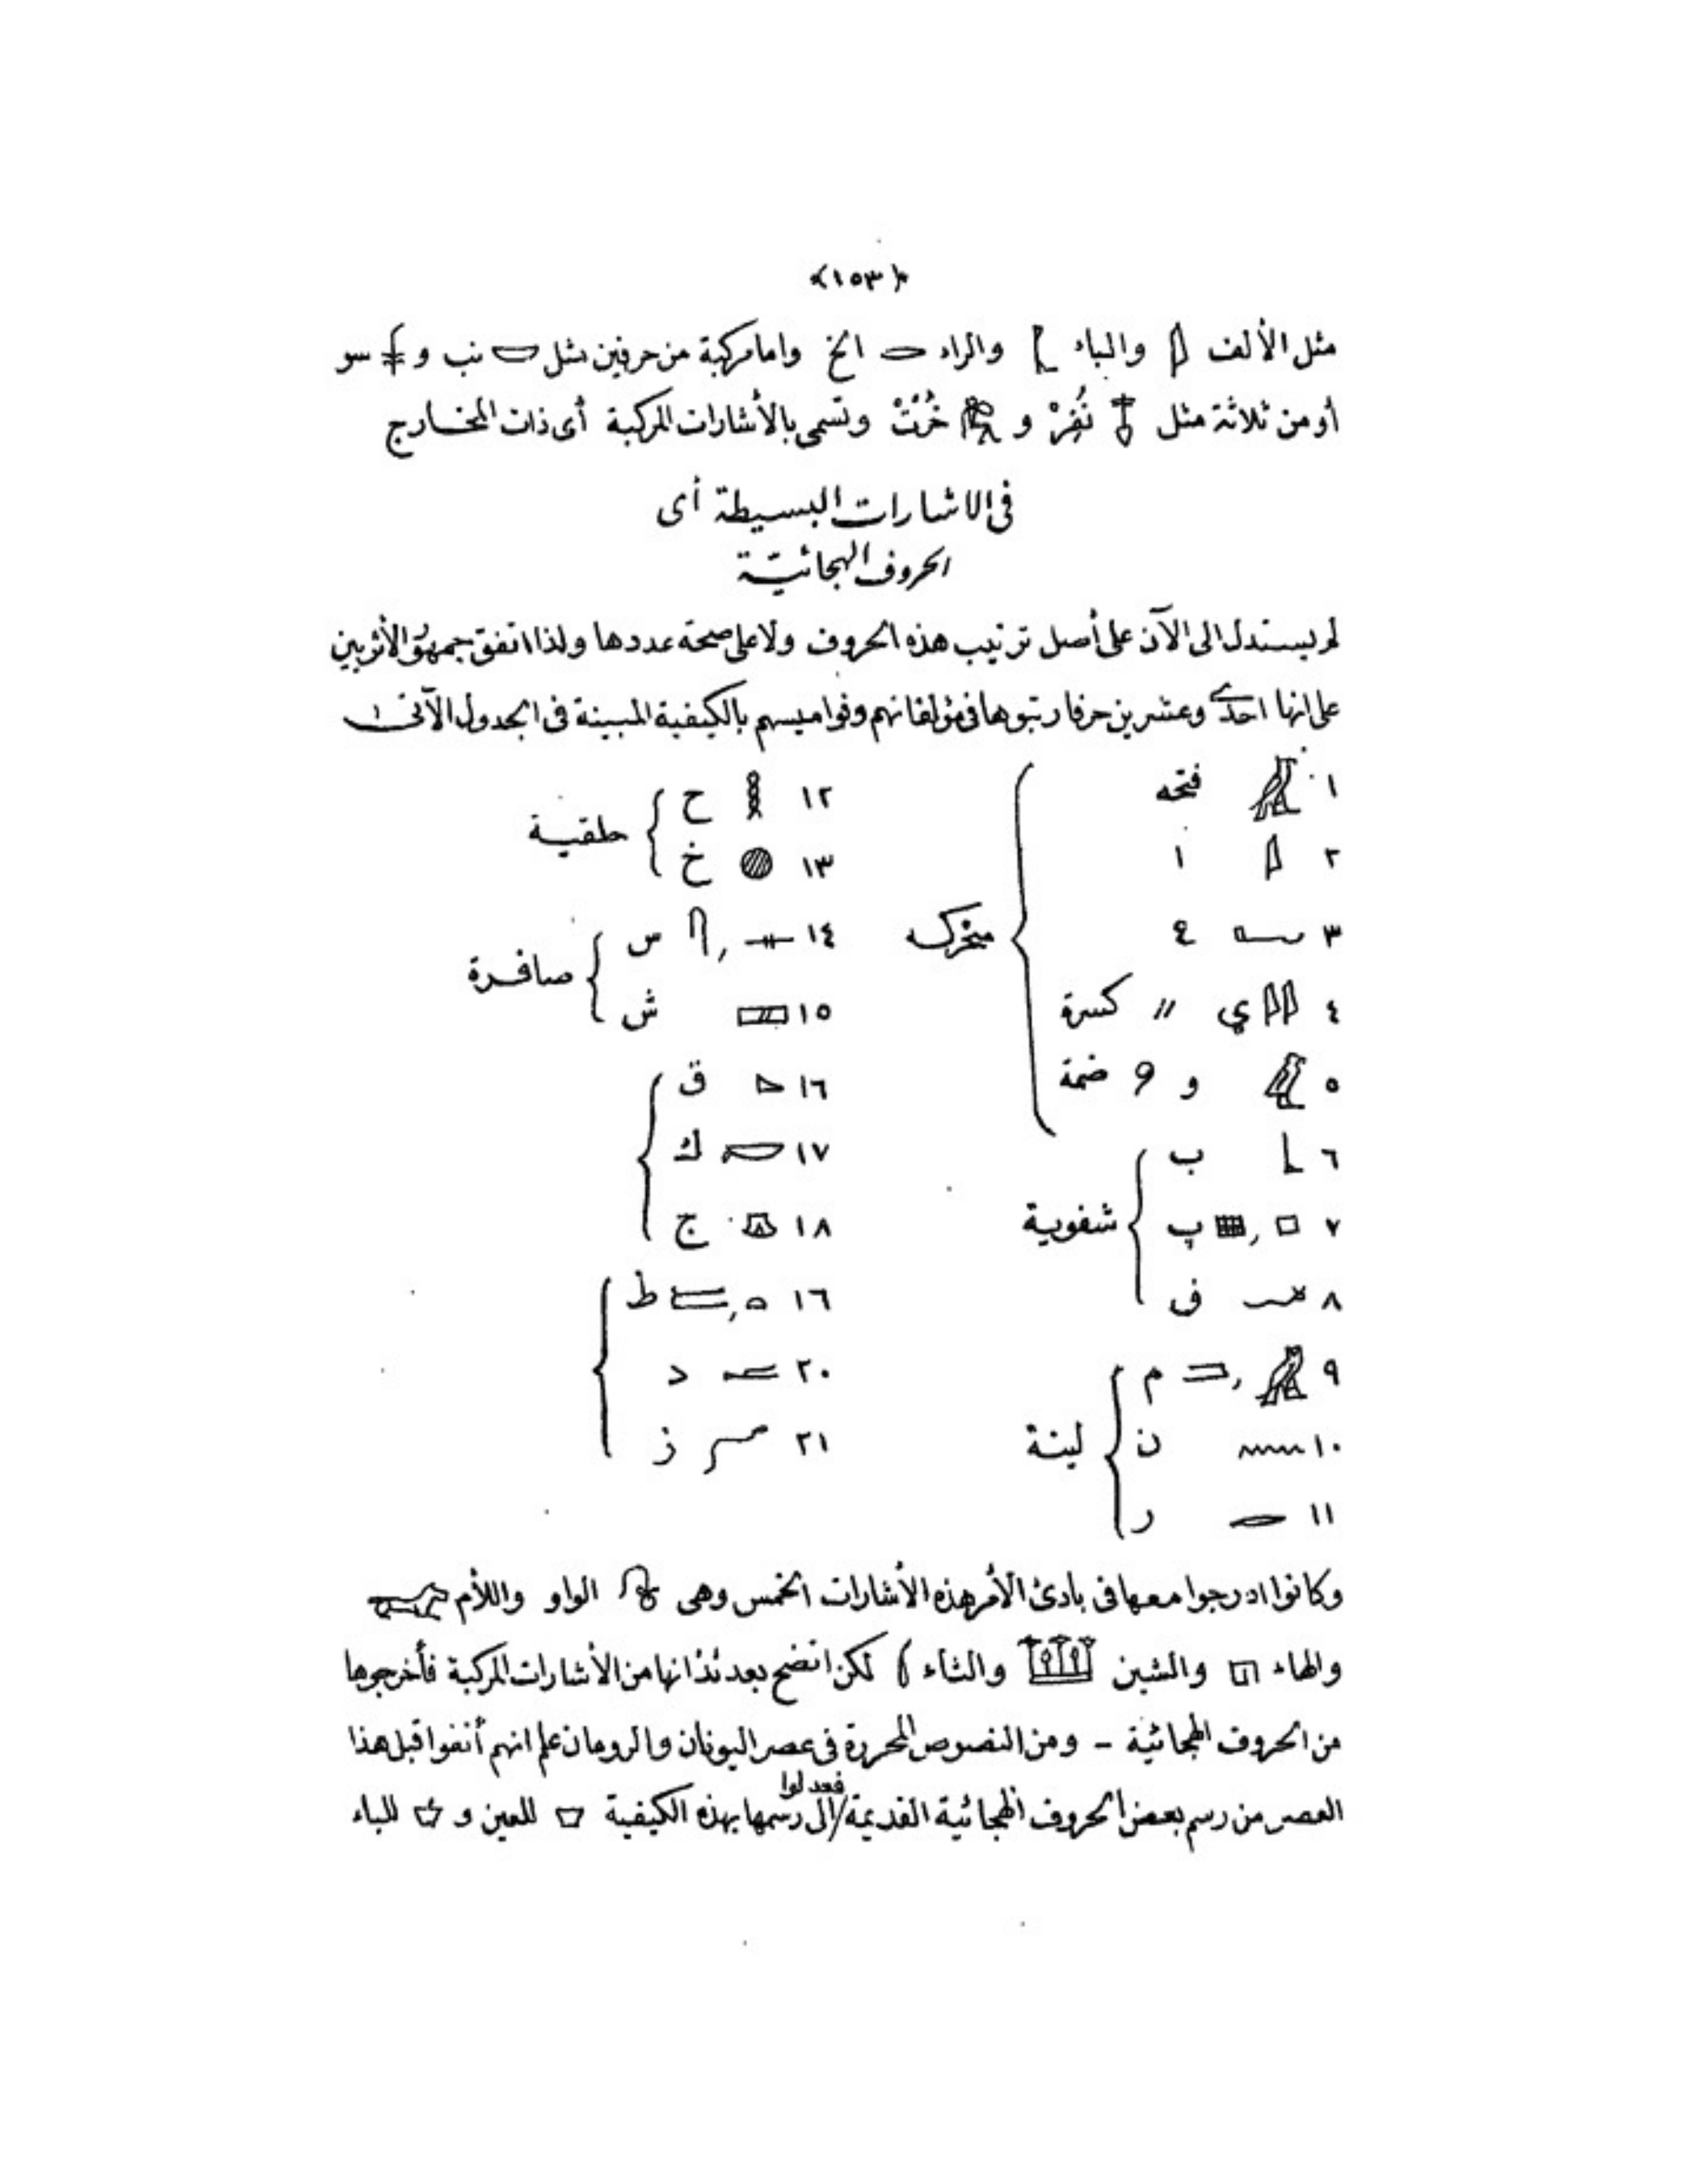 ﴿١٥٣﴾
مثل الألف 𓇋 والباء 𓃀 والراء 𓂋 الخ واما مركبة من حرفين مثل 𓎟 نب و 𓇓 سو
أو من ثلاثة مثل 𓄤 نُفِرْ و خُنْتْ وتسمى بالأشارات المركبة أى ذات المخارج
فى الاشارات البسيطة أى
الحروف الهجائيّة
لم يستدل الى الآن على أصل ترتيب هذه الحروف ولا على صحة عددها ولذا اتفق جمهور الأثريين
على انها احدى وعشرين حرفا رتبوها فى مؤلفاتهم وقواميسهم بالكيفية المبينة فى الجدول الآتى
١ 𓄿 فتحه
٢ 𓇋 ا
٣ 𓂝 ع
٤ 𓇌 ي 〃 كسرة
٥ 𓅱 و 𓏲 ضمة
متحركه
٦ 𓃀 ب
٧ 𓊪 , ▦ پ
٨ 𓆑 ف
شفوية
٩ 𓅓 , 𓐝 م
١٠ 𓈖 ن
١١ 𓂋 ر
لينة
١٢ 𓎛 ح
١٣ 𓐍 خ
حلقية
١٤ 𓊃 , 𓋴 س
١٥ 𓈙 ش
صافرة
١٦ 𓈎 ق
١٧ 𓎡 ك
١٨ 𓎼 ج
١٦ 𓏏 , 𓍿 ط
٢٠ 𓂧 د
٢١ 𓆓 ز
وكانوا ادرجوا معها فى بادئ الأمر هذه الأشارات الخمس وهى 𓍯 الواو واللأم 𓃭
والهاء 𓉔 والشين 𓆷 والثاء لكن اتضح بعدئذ انها من الأشارات المركبة فأخرجوها
من الحروف الهجائية – ومن النصوص المحررة فى عصر اليونان والرومان علم انهم أنفوا قبل هذا
العصر من رسم بعض الحروف الهجائية القديمة / فعدلوا الى رسمها بهذه الكيفية للعين و للباء